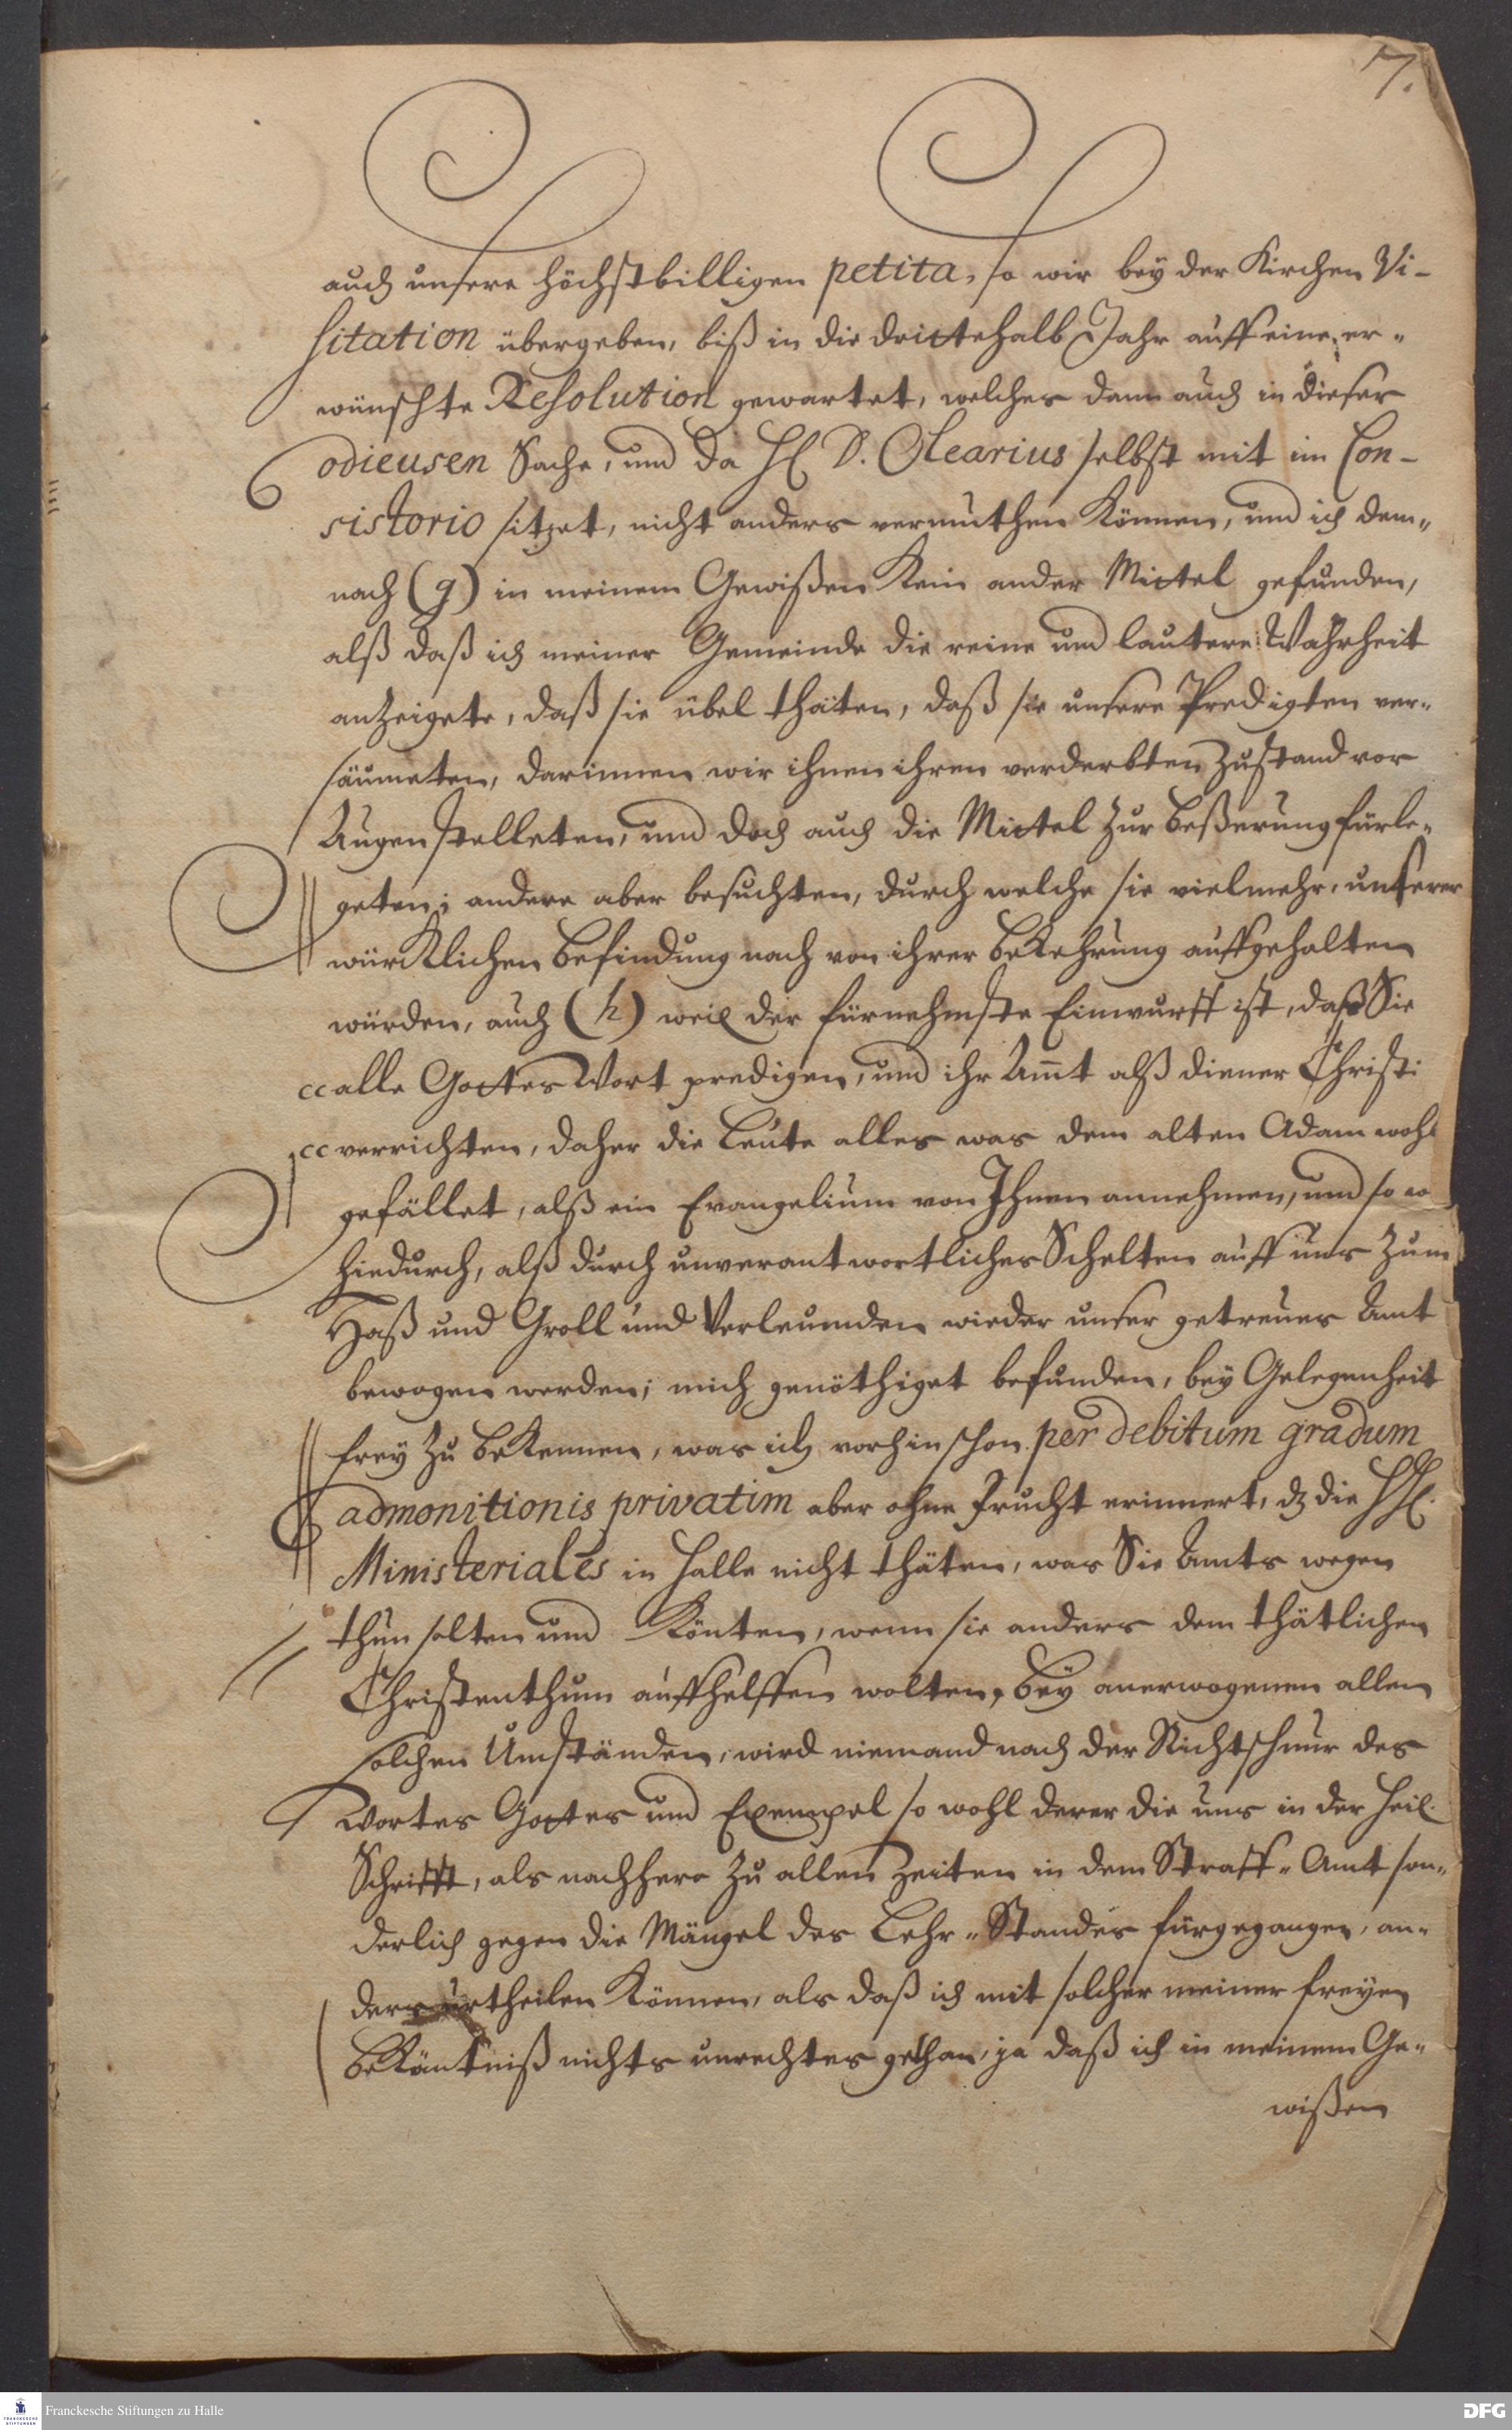 7.
auch unsere höchstbilligen petita, so wir bey der Kirchen Vi-
sitation übergeben, biß in die drittehalb Jahr auff eine er-
wünschte Resolution gewartet, welches dann auch in dieser
odieusen Sache, und da H. D. Olearius selbst mit im Con-
sistorio sitzet, nicht anders vermuthen können, und ich dem-
nach (g) in meinem Gewißen kein ander Mittel gefunden,
alß daß ich meiner Gemeinde die reine und lautere Wahrheit
anzeigete, daß sie übel thäten, daß sie unsere Predigten ver-
säumeten, darinnen wir ihnen ihren verderbten Zustand vor
Augen stelleten, und doch auch die Mittel zur Beßerung fürle-
geten; andere aber besuchten, durch welche sie vielmehr, unserer
würcklichen Befindung nach von ihrer Bekehrung auffgehalten
würden, auch (h) weil der fürnehmste Einwurff ist, daß Sie
cc alle Gottes Wort predigen, und ihr Ammt alß diener Christi
cc verrichten, daher die Leute alles was dem alten Adam wohl
gefället, alß ein Evangelium von Ihnen annehmen, und so
hiedurch, alß durch unverantwortliches Schelten auff uns zum
Haß und Groll und Verleumden wieder unser getreues Amt
bewogen werden; mich genöthiget befunden, bey Gelegenheit
frey zu bekennen, was ich vorhin schon per debitum gradum
admonitionis privatim aber ohne Frucht erinnert, dz die HH.
Ministeriales in Halle nicht thäten, was Sie Amts wegen
thun solten und könten, wenn sie anders dem thätlichen
Christenthum auffhelffen wolten, Bey anerwogenen allen
solchen Umständen, wird niemand nach der Richtschnur des
Wortes Gottes und Exempel so wohl derer die uns in der Heil.
Schrifft, als nachhero zu allen Zeiten in dem Straff-Amt son-
derlich gegen die Mängel des Lehr-Standes fürgegangen, an-
ders urtheilen können, als daß ich mit solcher meiner freyen
Bekäntniß nichts unrechtes gethan, ja daß ich in meinem Ge-
wißen
Franckesche Stiftungen zu Halle
DFG